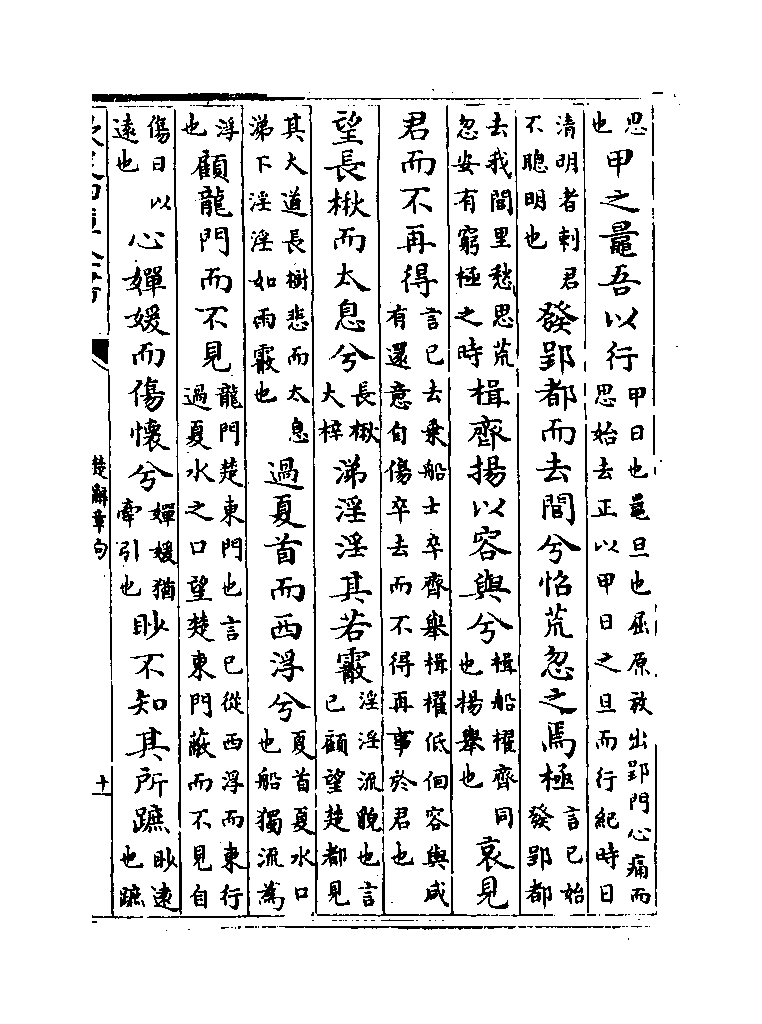 思也甲之鼂吾以行甲日也鼂旦也屈原放出郢門心痛而思始去正以甲日之旦而行紀時日
清明者刺君不聰明也發郢都而去閭兮怊荒忽之焉極言已始發郢都
去我閭里愁思荒忽安有窮極之時楫齊揚以容與兮楫船櫂齊同也揚舉也哀見
君而不再得言已去乗船士卒齊舉楫櫂低佪容與咸有還意自傷卒去而不得再事於君也
望長楸而太息兮長楸大梓涕淫淫其若霰淫淫流貌也言已顧望楚都見
其大道長樹悲而太息涕下淫淫如雨霰也過夏首而西浮兮夏首夏水口也船獨流為
浮也顧龍門而不見龍門楚東門也言已從西浮而東行過夏水之口望楚東門蔽而不見自
傷日以遠也心嬋媛而傷懷兮嬋媛猶牽引也眇不知其所蹠眇遠也蹠
楚辭章句
十